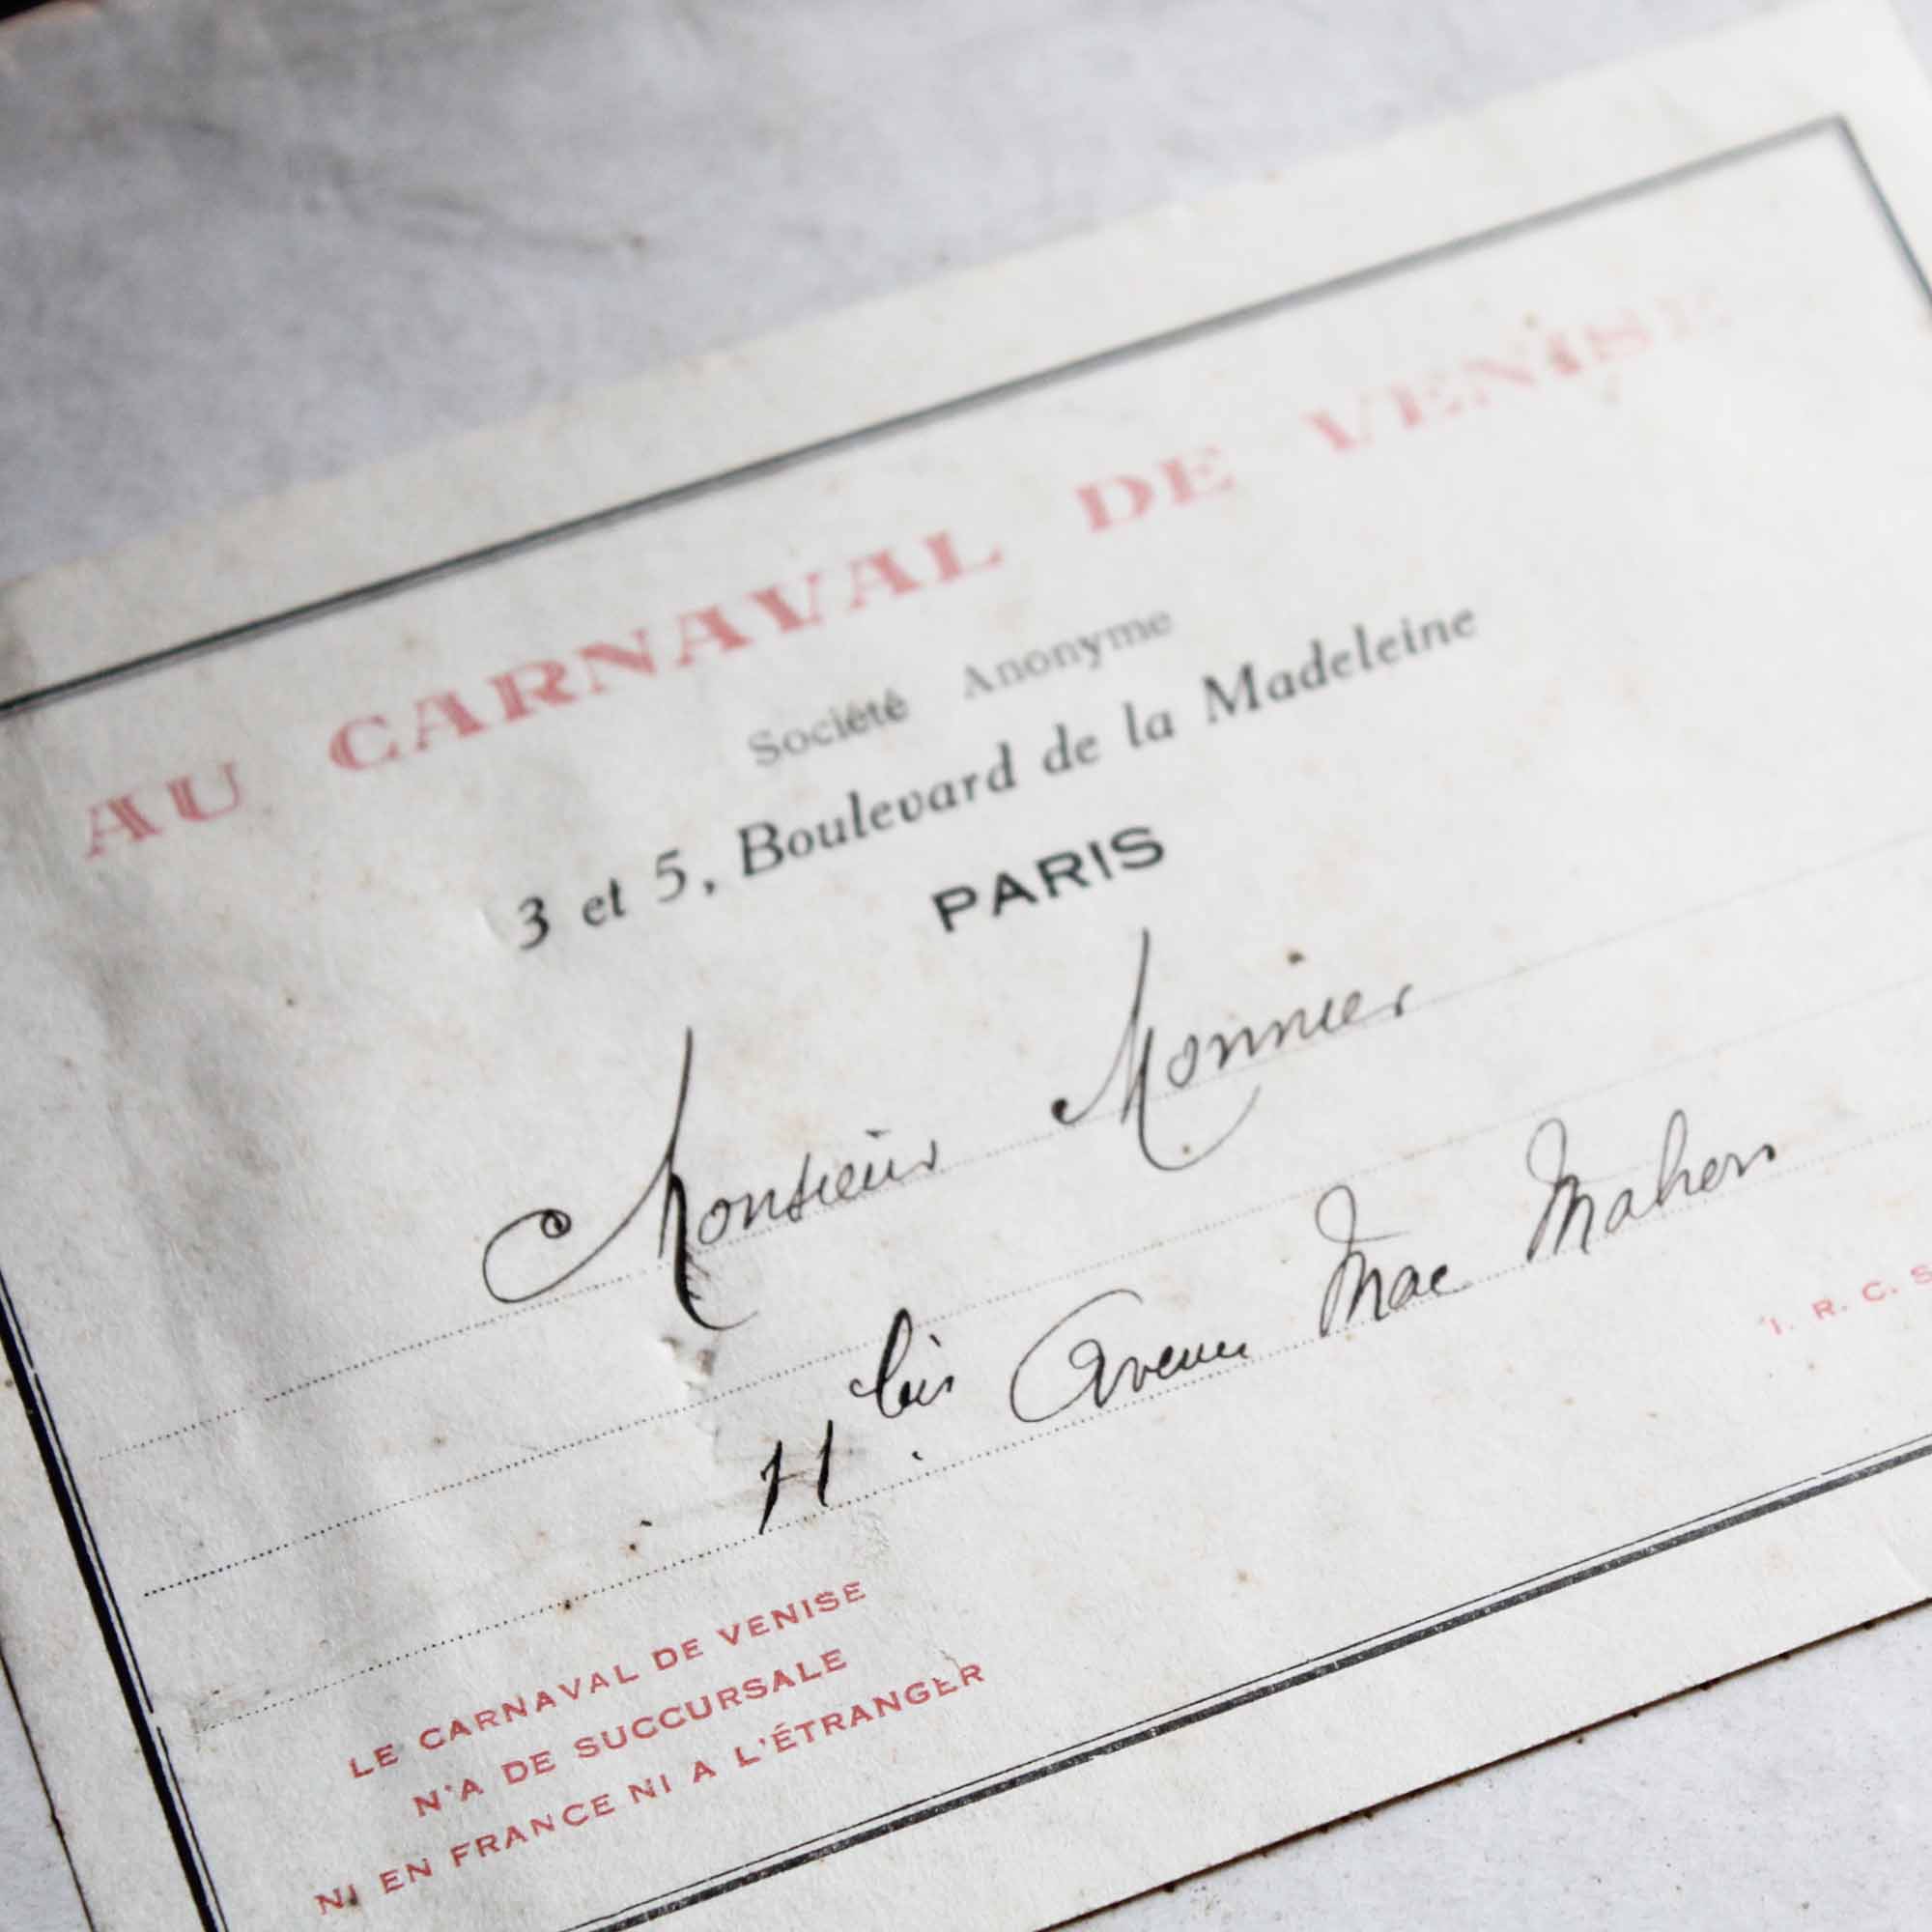 AU CARNAVAL DE VENISE
Société Anonyme
3 et 5, Boulevard de la Madeleine
PARIS
Monsieur Monnier
11 bis Avenue Mac Mahon
1. R. C. S
LE CARNAVAL DE VENISE
N'A DE SUCCURSALE
NI EN FRANCE NI A L'ÉTRANGER